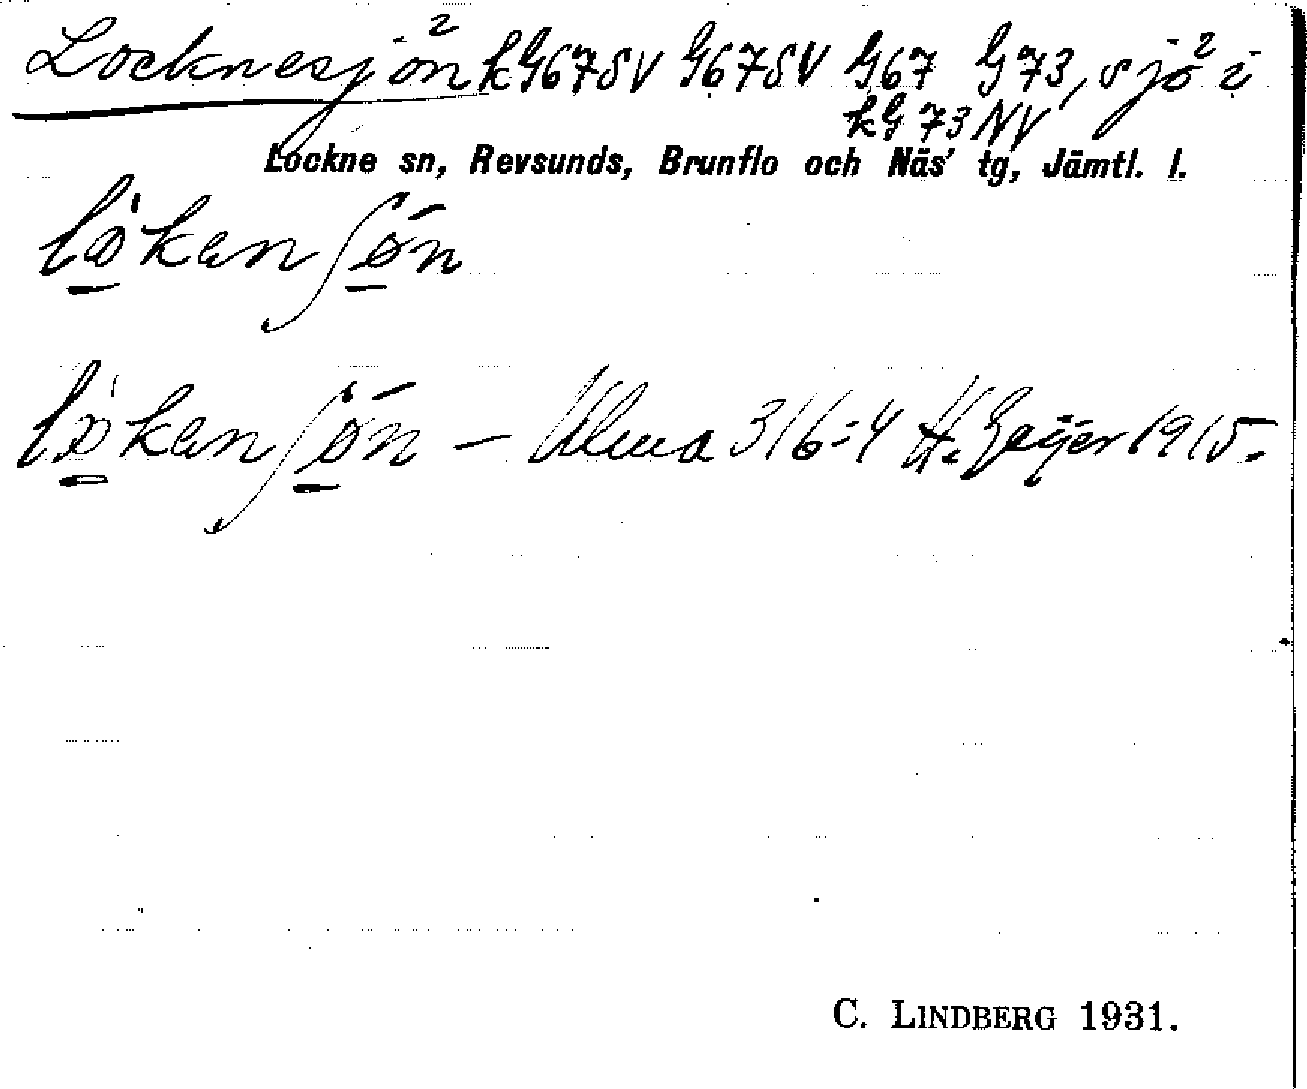 Locknesjön² kG67SV G67SV G67 G73, sjö² i
kG 73 NV
Lockne sn, Revsunds, Brunflo och Näs' tg, Jämtl. l.
— Ulma 316:4 H. Geijer 1915.
C. LINDBERG 1931.